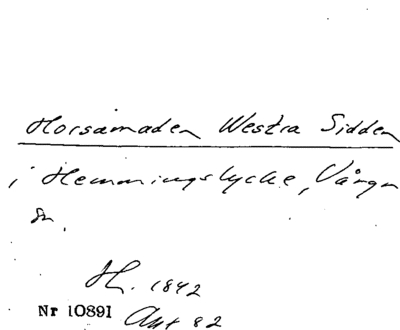 Horsåmaden Westra Sidden
i Hemmingslycke, Vånga
sn.
H. 1842
Nr 10891 Akt 82